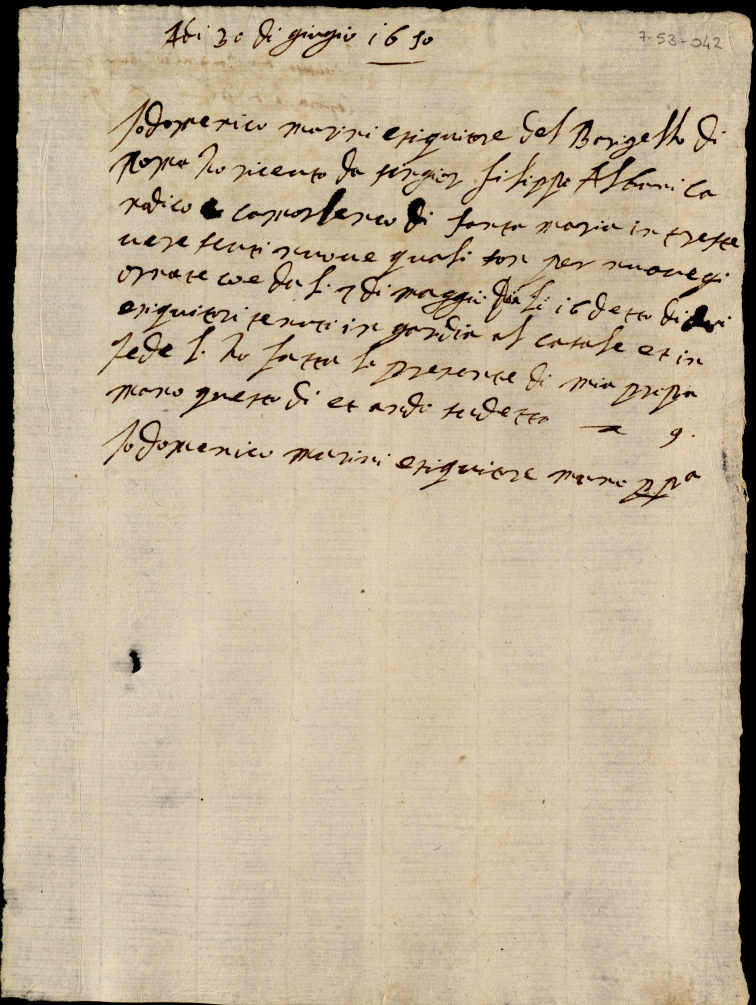 Adi 30 di giugnio 1650
7-53-042
Io domenico marini esiquitore del Barigello di
roma ho riceuto da singior filippo Albani ca
nonico e camorlenco di santa maria in traste
uere scuti nuoue quali son per nuoue gi
ornate coe da li 7 di maggio fin li 16 detto di
esiquitori tenuti in gardia al casale et in
fede li ho fatta la presente di mia propia
mano questo di et anno sudetto — 9.
Io domenico marini esiquitore mano ppa